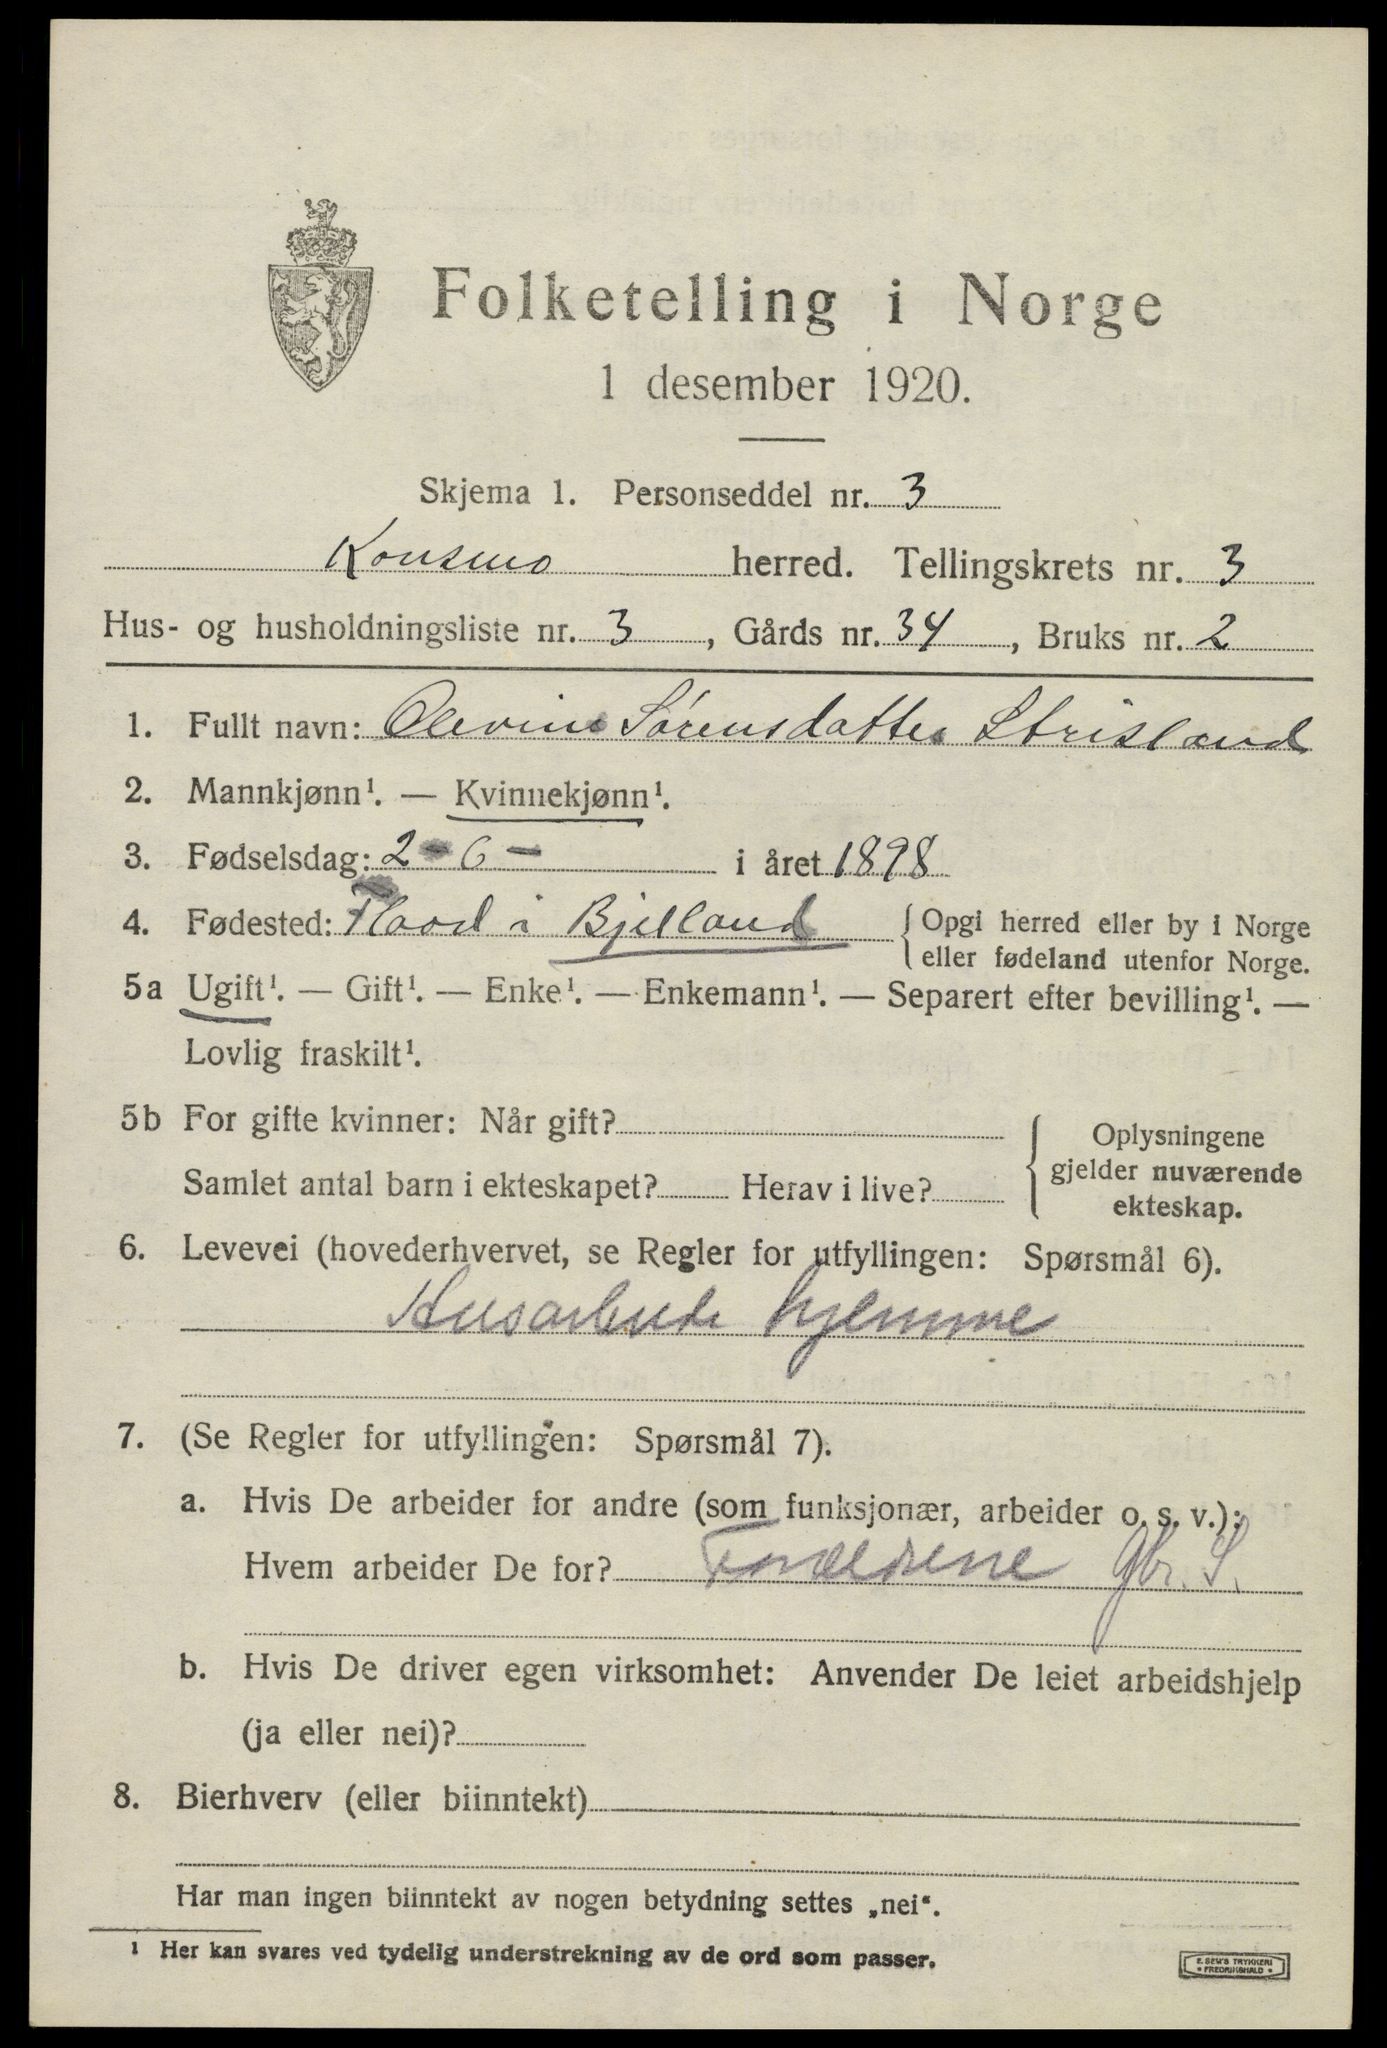 Folketelling i Norge
1 desember 1920.
Skjema 1. Personseddel nr. 3
Konsmo herred. Tellingskrets nr. 3
Hus- og husholdningsliste nr. 3, Gårds nr. 34, Bruks nr. 2
1. Fullt navn: Olevine Sørensdatter Strisland
2. Mannkjønn¹. — Kvinnekjønn¹.
3. Fødselsdag: 2-6- i året 1898
4. Fødested: Flaad i Bjelland { Opgi herred eller by i Norge
eller fødeland utenfor Norge.
5a Ugift¹. — Gift¹. — Enke¹. — Enkemann¹. — Separert efter bevilling¹. —
Lovlig fraskilt¹.
5b For gifte kvinner: Når gift?
Samlet antal barn i ekteskapet? Herav i live?
{ Oplysningene
gjelder nuværende
ekteskap.
6. Levevei (hovederhvervet, se Regler for utfyllingen: Spørsmål 6).
Husarbeide hjemme
7. (Se Regler for utfyllingen: Spørsmål 7).
a. Hvis De arbeider for andre (som funksjonær, arbeider o. s. v.):
Hvem arbeider De for? Forældrene gbr. S.
b. Hvis De driver egen virksomhet: Anvender De leiet arbeidshjelp
(ja eller nei)?
8. Bierhverv (eller biinntekt)
Har man ingen biinntekt av nogen betydning settes „nei“.
¹ Her kan svares ved tydelig understrekning av de ord som passer.
E. SEM'S TRYKKERI
* FREDRIKSHALD *